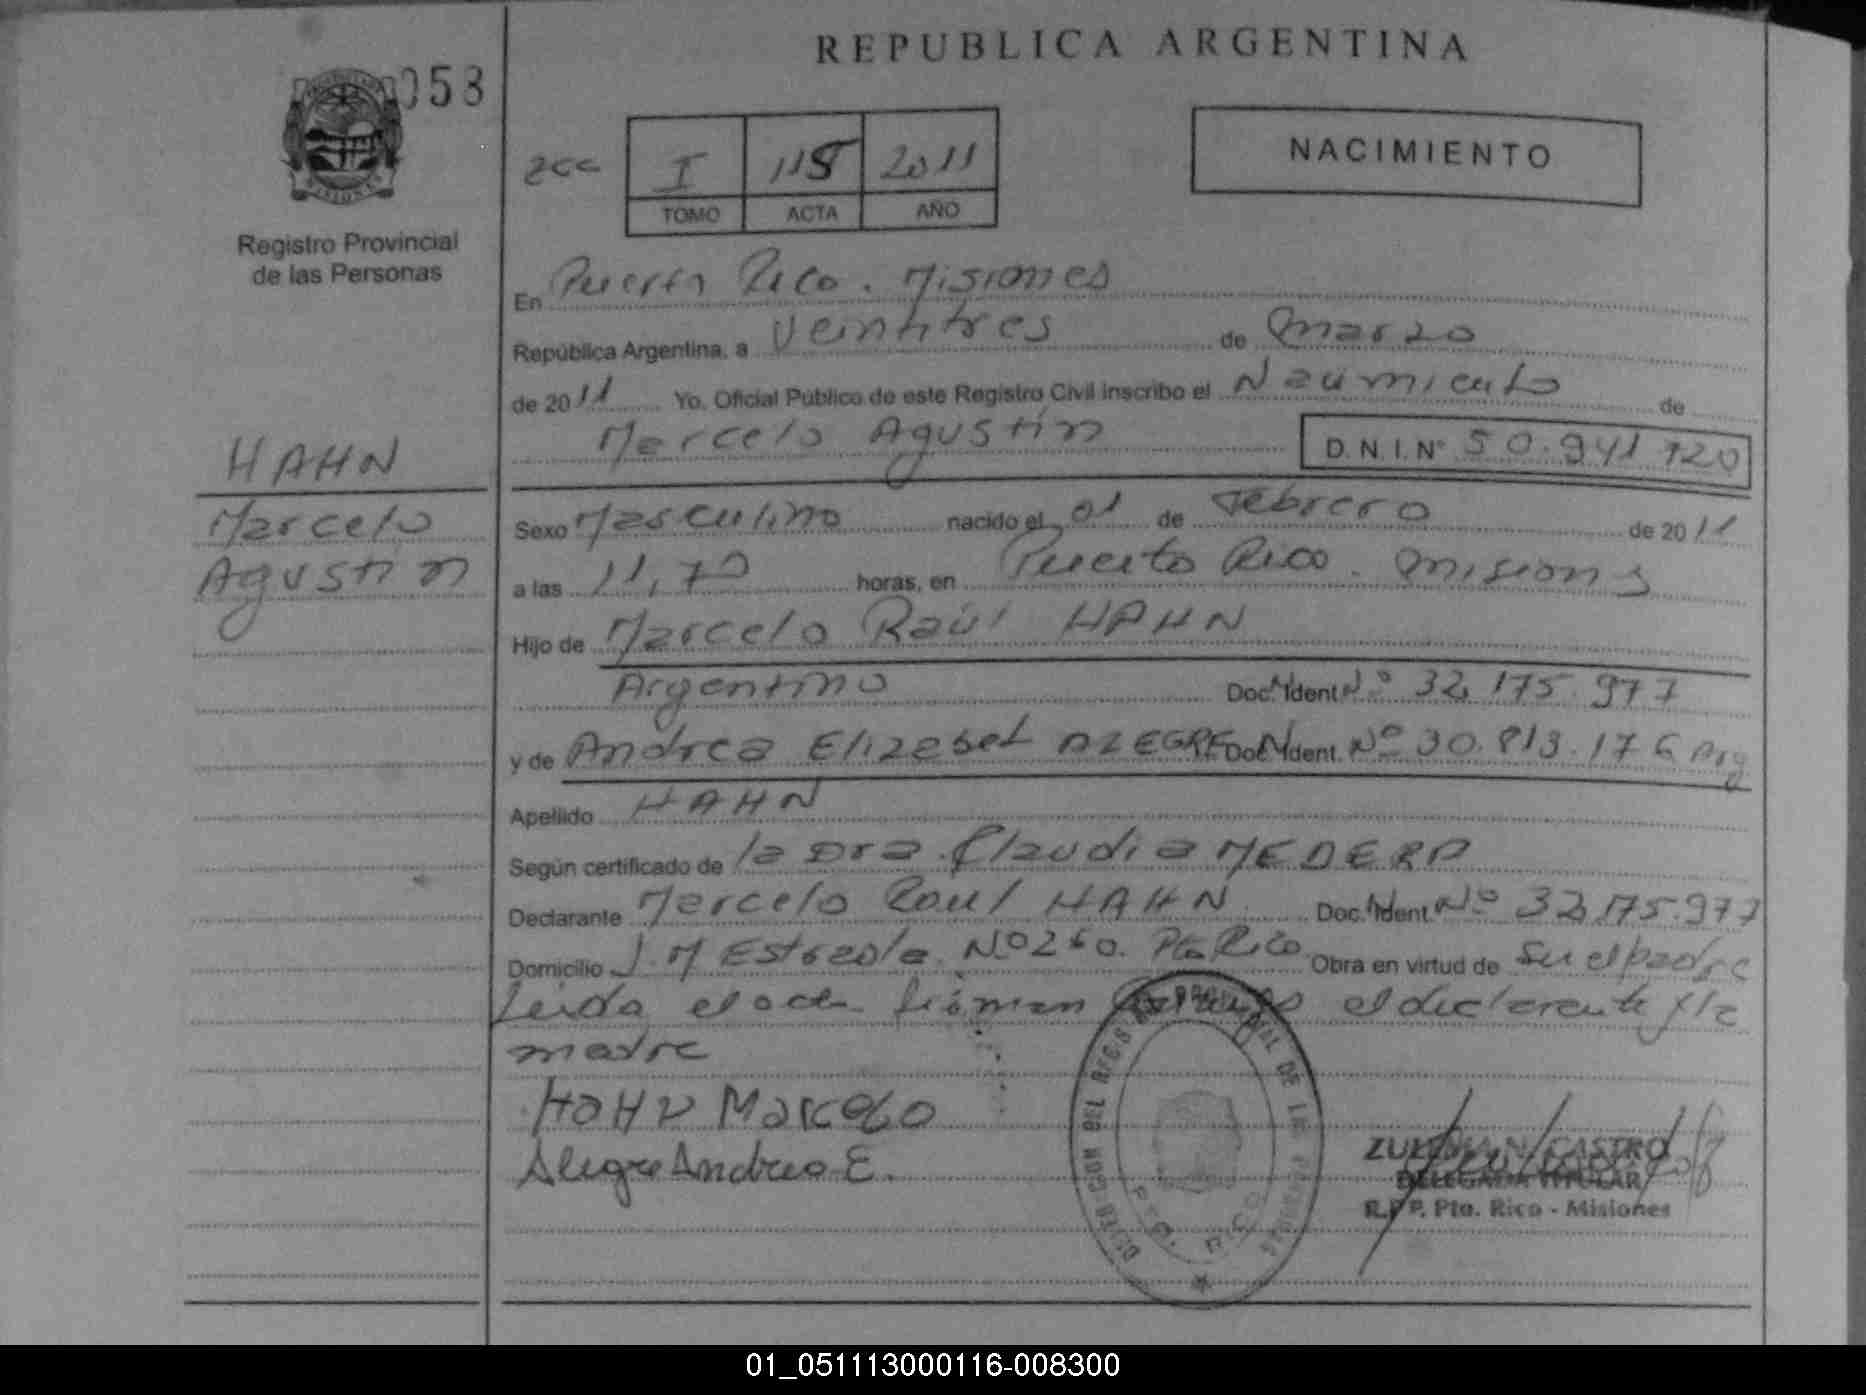 REPUBLICA ARGENTINA
058
Registro Provincial
de las Personas
I 115 2011
TOMO ACTA AÑO
NACIMIENTO
En Puerto Rico. Misiones
República Argentina, a Veintitres de marzo
de 2011 Yo, Oficial Público de este Registro Civil inscribo el Nacimiento de
Marcelo Agustín D.N.I. Nº 50.941.720
HAHN
Marcelo
Agustín
Sexo Masculino nacido el 01 de Febrero de 2011
a las horas, en Puerto Rico. Misiones
Hijo de Marcelo Raúl HAHN
Argentino Doc. Ident. Nº 32.175.977
y de Andrea Elizabet ALEGRE Doc. Ident. Nº 30.813.176 Arg
Apellido HAHN
Según certificado de la Dra. Claudia MEDERO
Declarante Marcelo Raul HAHN Doc. Ident. Nº 32.175.977
Domicilio J. M Estrada Nº 260. Pto Rico Obra en virtud de Su el padre
Leida el acta firman el declarante y la
madre
HaHN Marcelo
Alegre Andrea E.
DIRECCION DEL REG.
PROVINCIAL DE LAS PERSONAS
PTO. RICO
CASTRO
DELEGADA TITULAR
R.P.P. Pto. Rico - Misiones
01_051113000116-008300